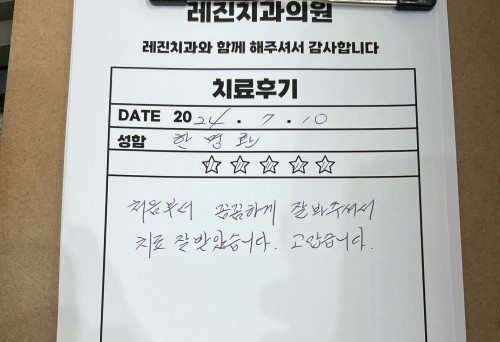 레진치과의원
레진치과와 함께 해주셔서 감사합니다
치료후기
DATE 2024 . 7 . 10
성함 한명란
☆☆☆☆☆
처음부터 꼼꼼하게 잘봐주셔서
치료 잘받았습니다. 고맙습니다.